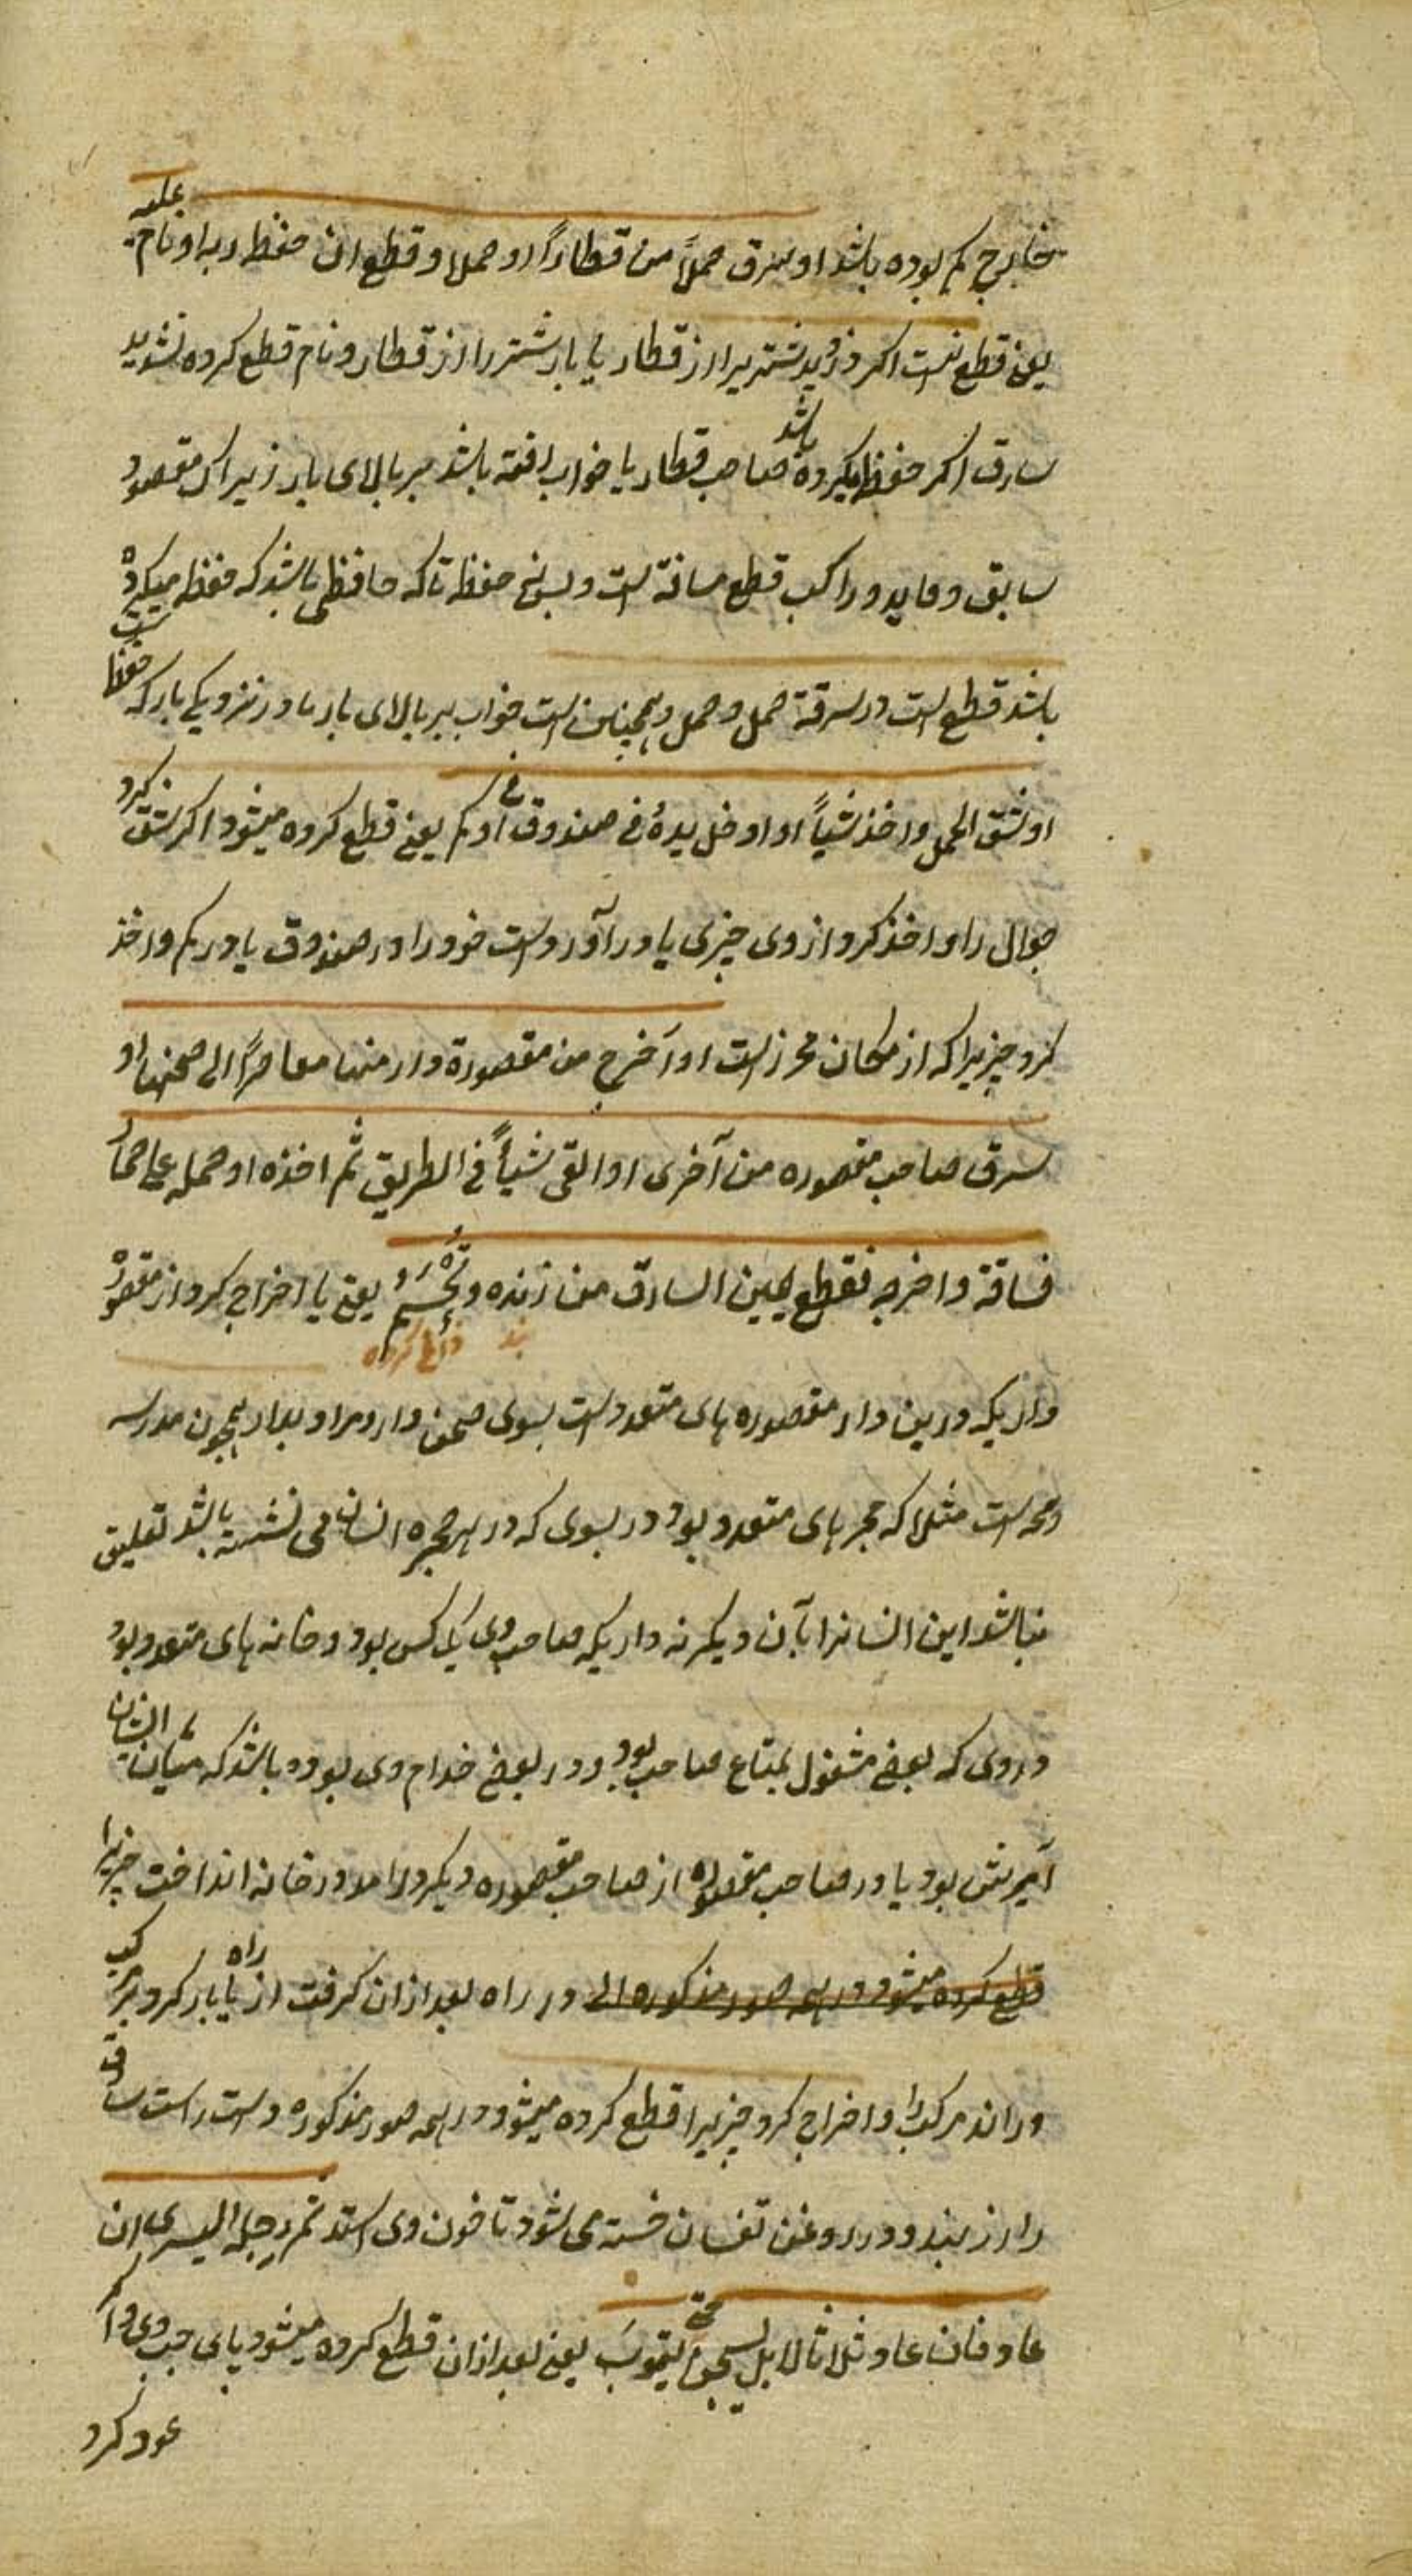 خارج کم بوده باشد او سرق جملاً من قطار او حملا و قطع ان حفظ ربه او نام علیه
یعنی قطع نیست اکر دزدید شتریرا از قطار یا بار شتر را از قطار و نام قطع کرده نشوید
سارق اکر حفظ میکرده باشد صاحب قطار یا خواب رفته باشد بر بالای بار زیراکه مقصود
سابق و قاید و راکب قطع مسافة است و بس نه حفظ تا که حافظی باشد که حفظ میکرده
باشد قطع است در سرقة جمل و حمل و همچنین است خواب بر بالای بار یا در نزدیکی بار که حفظ است
او شق الحمل و اخذ شیأً او ادخل یده فی صندوق او فی کم یعنی قطع کرده میشود اکر شق کرد
جوال را و اخذ کرد از وی چیزی یا در آورد دست خود را در صندوق یا در کم و اخذ
کرد چیزیرا که از مکان محرز است او آخرج من مقصورة دار منها مقاصرً الی صحنها او
سرق صاحب مقصوره من آخری او القی شیأً فی الطریق ثم اخذه او حمله علی حمار
فساقه و اخرجه فقطع یمین السارق من زنده و تُحْسَم یعنی یا اخراج کرد از مقصوره
بند داغ کرده
داریکه درین دار مقصوره های متعدد است بسوی صحن دار و مراد بدار همچون مدرسه
و است مثلا که حجرهای متعدد بود در بسوی که در هر حجره انسانی می نشسته باشد تعلیق
نباشد این انسانرا بآن دیکر نه داریکه صاحب وی یک کس بود و خانه های متعدد بود
در وی که بعضی مشغول بمتاع صاحب بود و در بعضی خدام وی بوده باشد که میان ایشان
آمیزش بود یا در صاحب مقصوره از صاحب مقصوره دیکر در خانه انداخت چیزیرا
قطع کرده میشود در همه صور مذکوره الی در راه بعد ازان کرفت از راه یا بار کرد بر مرکب
و راند مرکب را و اخراج کرد چیزیرا قطع کرده میشود در همه صور مذکوره دست راست سارق
را از بند و در روغن تفسان خسته می شود تا خون وی استد ثم رجله الیسری ان
عاد فان عاد ثالثا لا بل یسجن حتی یتوب یعنی بعد ازان قطع کرده میشود پای چپ وی را اکر
عود کرد